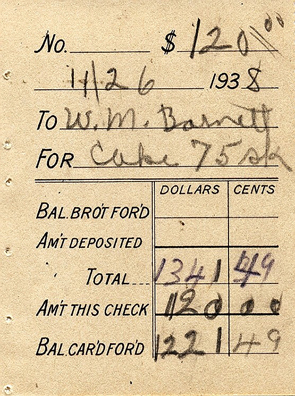 No. $ 120 00
11/26 1938
To W. M. Barnett
For Cake 75 sk
DOLLARS CENTS
BAL. BRO'T FOR'D
AM'T DEPOSITED
TOTAL 1341 49
AM'T THIS CHECK 120 00
BAL. CAR'D FOR'D 1221 49